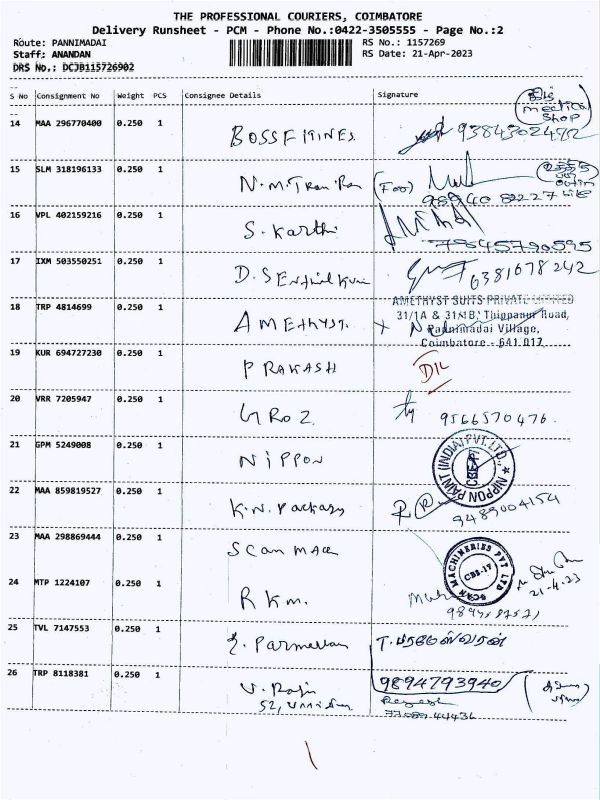 THE PROFESSIONAL COURIERS, COIMBATORE
Delivery Runsheet - PCM - Phone No.:0422-3505555 - Page No.:2
Route: PANNIMADAI
RS No.: 1157269
Staff: ANANDAN
RS Date: 21-Apr-2023
DRS No.: DCJB115726902
S No Consignment No Weight PCS Consignee Details Signature
medical
shop
14 MAA 296770400 0.250 1
9384302492
15 SLM 318196133 0.250 1 N.M.
(For)
16 VPL 402159216 0.250 1 S. Karthi
17 IXM 503550251 0.250 1 D.
6381678242
18 TRP 4814699 0.250 1 AMETHYST.
AMETHYST SUITS PRIVATE LIMITED
31/1A & 31/1B, Thippanur Road,
Pannimadai Village,
Coimbatore - 641 017
19 KUR 694727230 0.250 1 PRAKASH
20 VRR 7205947 0.250 1 GROZ
9566570476.
21 GPM 5249008 0.250 1 NIPPON
NIPPON PAINT (INDIA) PVT. LTD.
22 MAA 859819527 0.250 1 K.N.
9489004154
23 MAA 298869444 0.250 1 SCAN MAC
SCAN MACHINERIES PVT LTD
CBE-17
24 MTP 1224107 0.250 1 RKM.
21-4-23
25 TVL 7147553 0.250 1
T. பரமேஸ்வரன்
26 TRP 8118381 0.250 1 V. Raju
9894793940
52,